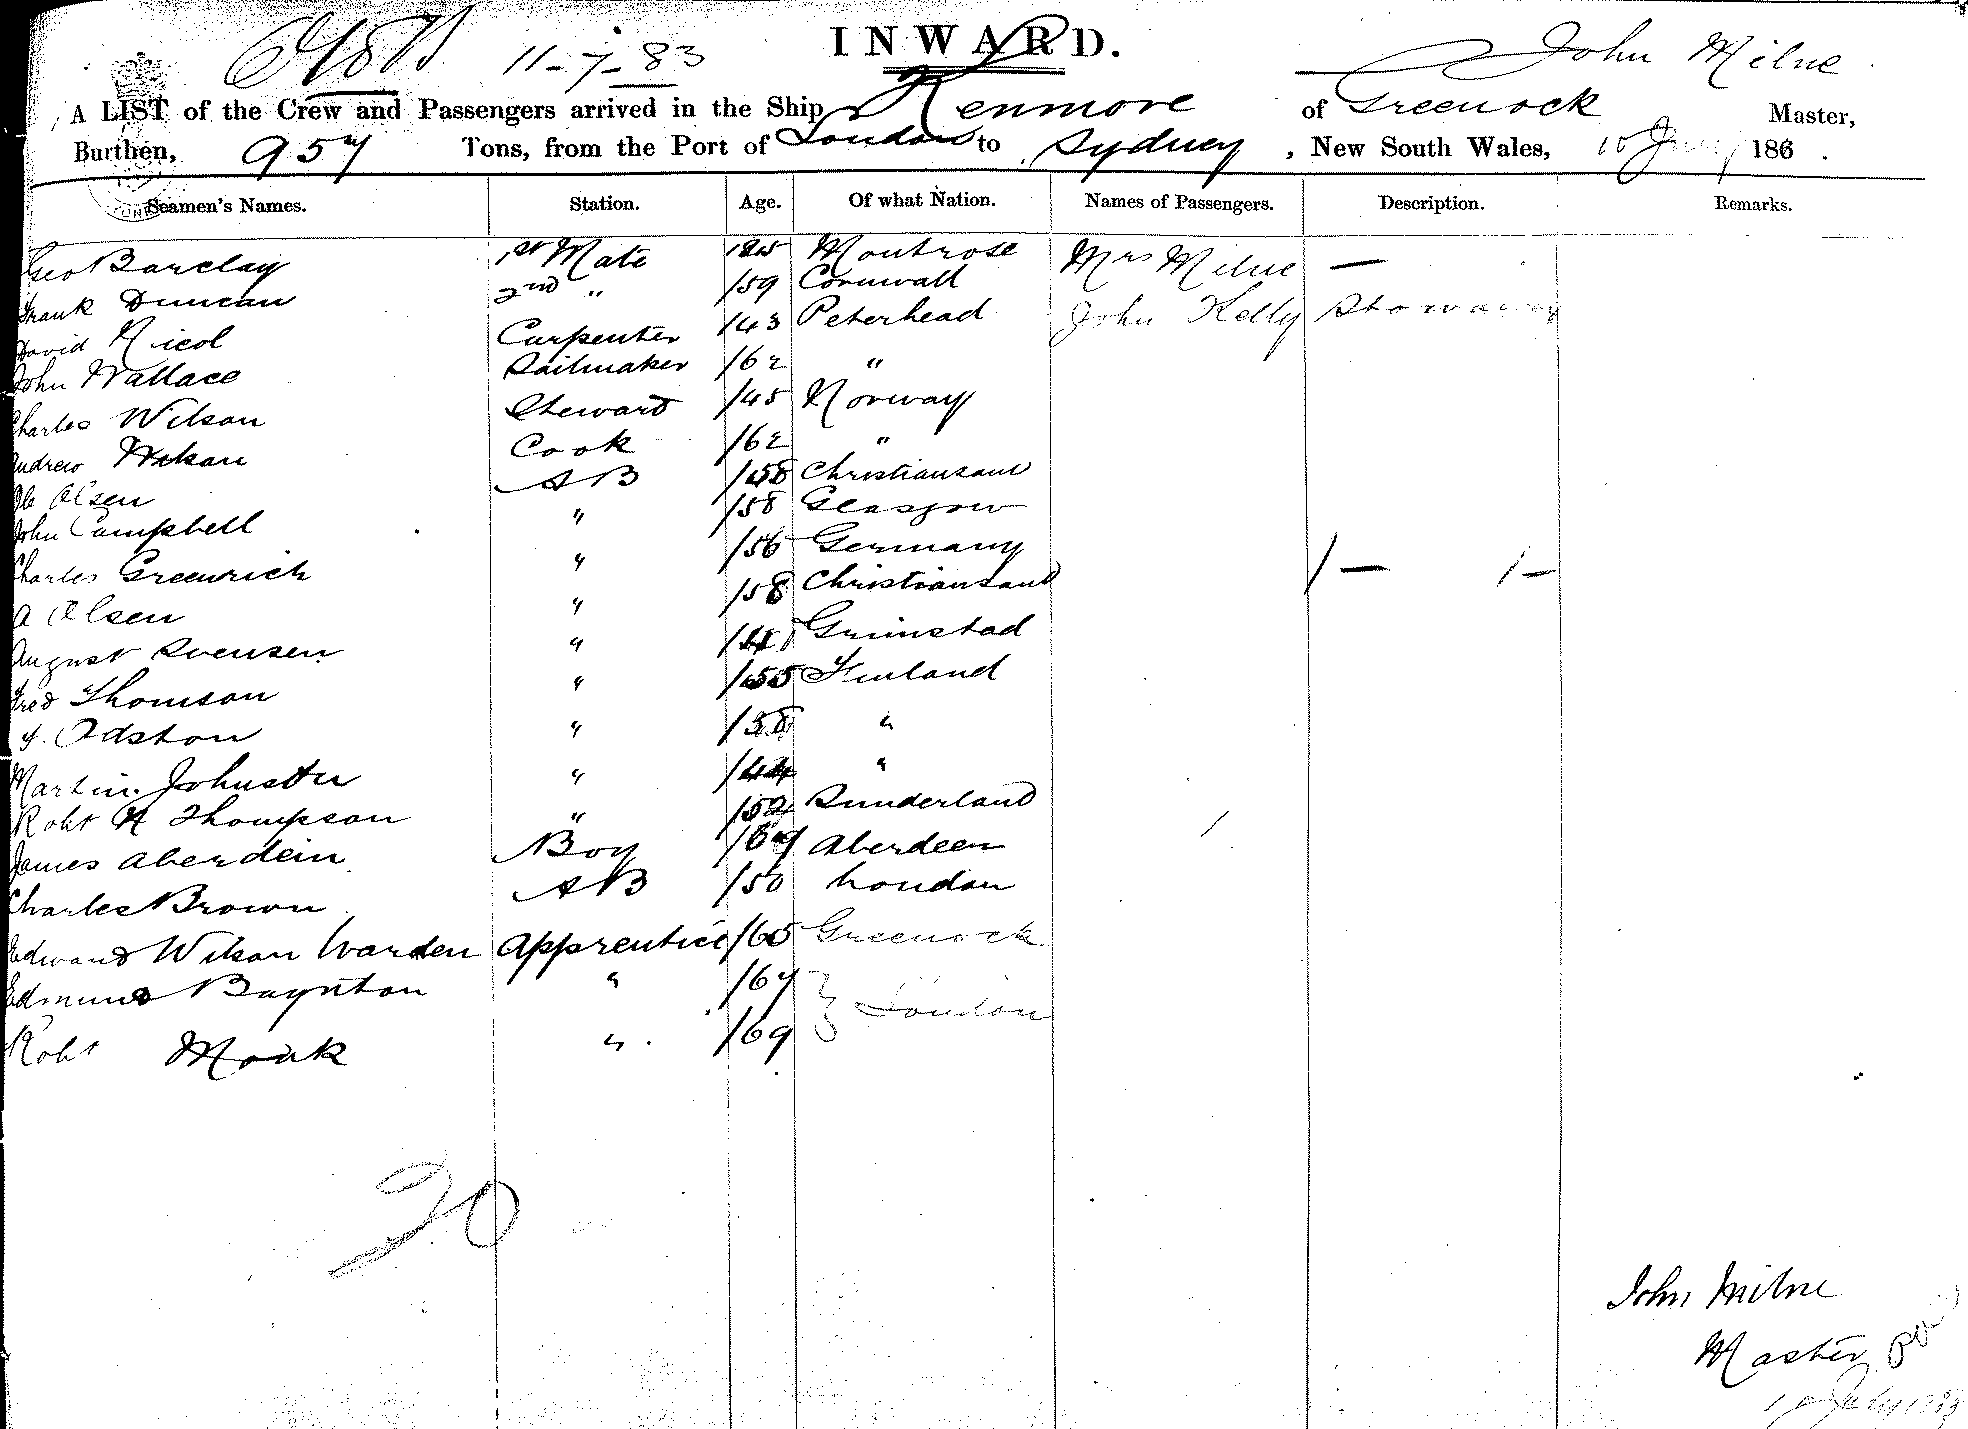 11-7-83 INWARD. John Milne
A LIST of the Crew and Passengers arrived in the Ship Kenmore of Greenock Master,
Burthen, 957 Tons, from the Port of London to Sydney, New South Wales, 10 July 186 .
Seamen's Names. Station. Age. Of what Nation. Names of Passengers. Description. Remarks.
Geo Barclay 1st Mate Montrose Mrs Milne —
Frank Duncan 2nd " /59 Cornwall John Kelly Stowaway
David Nicol Carpenter /43 Peterhead
John Wallace Sailmaker /62 "
Charles Wilson Steward /45 Norway
Andrew Cook /62 "
Ole Olsen AB /58 Christiansand
John Campbell " /58 Glasgow
Charles Greenrich " /56 Germany /— /—
A Olsen " /58 Christiansand
August Svensen " Grimstad
Fred Thomson " /55 Finland
Odston " /58 "
Martin " /44 "
Robt Thompson " /52 Sunderland
James Aberdein Boy /67 Aberdeen
Charles Brown AB /50 London
Edward Wilson Warden Apprentice /65 Greenock
Edmund Baynton " /67 } London
Robt Monk " /69
20
John Milne
Master
10 July 1883